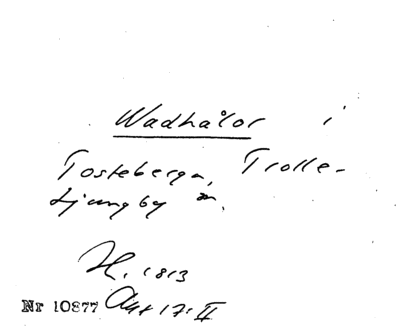 Wadhålor i
Tosteberga, Trolle-
Ljungby sn.
H. 1813
Nr 10877 Akt 17: II